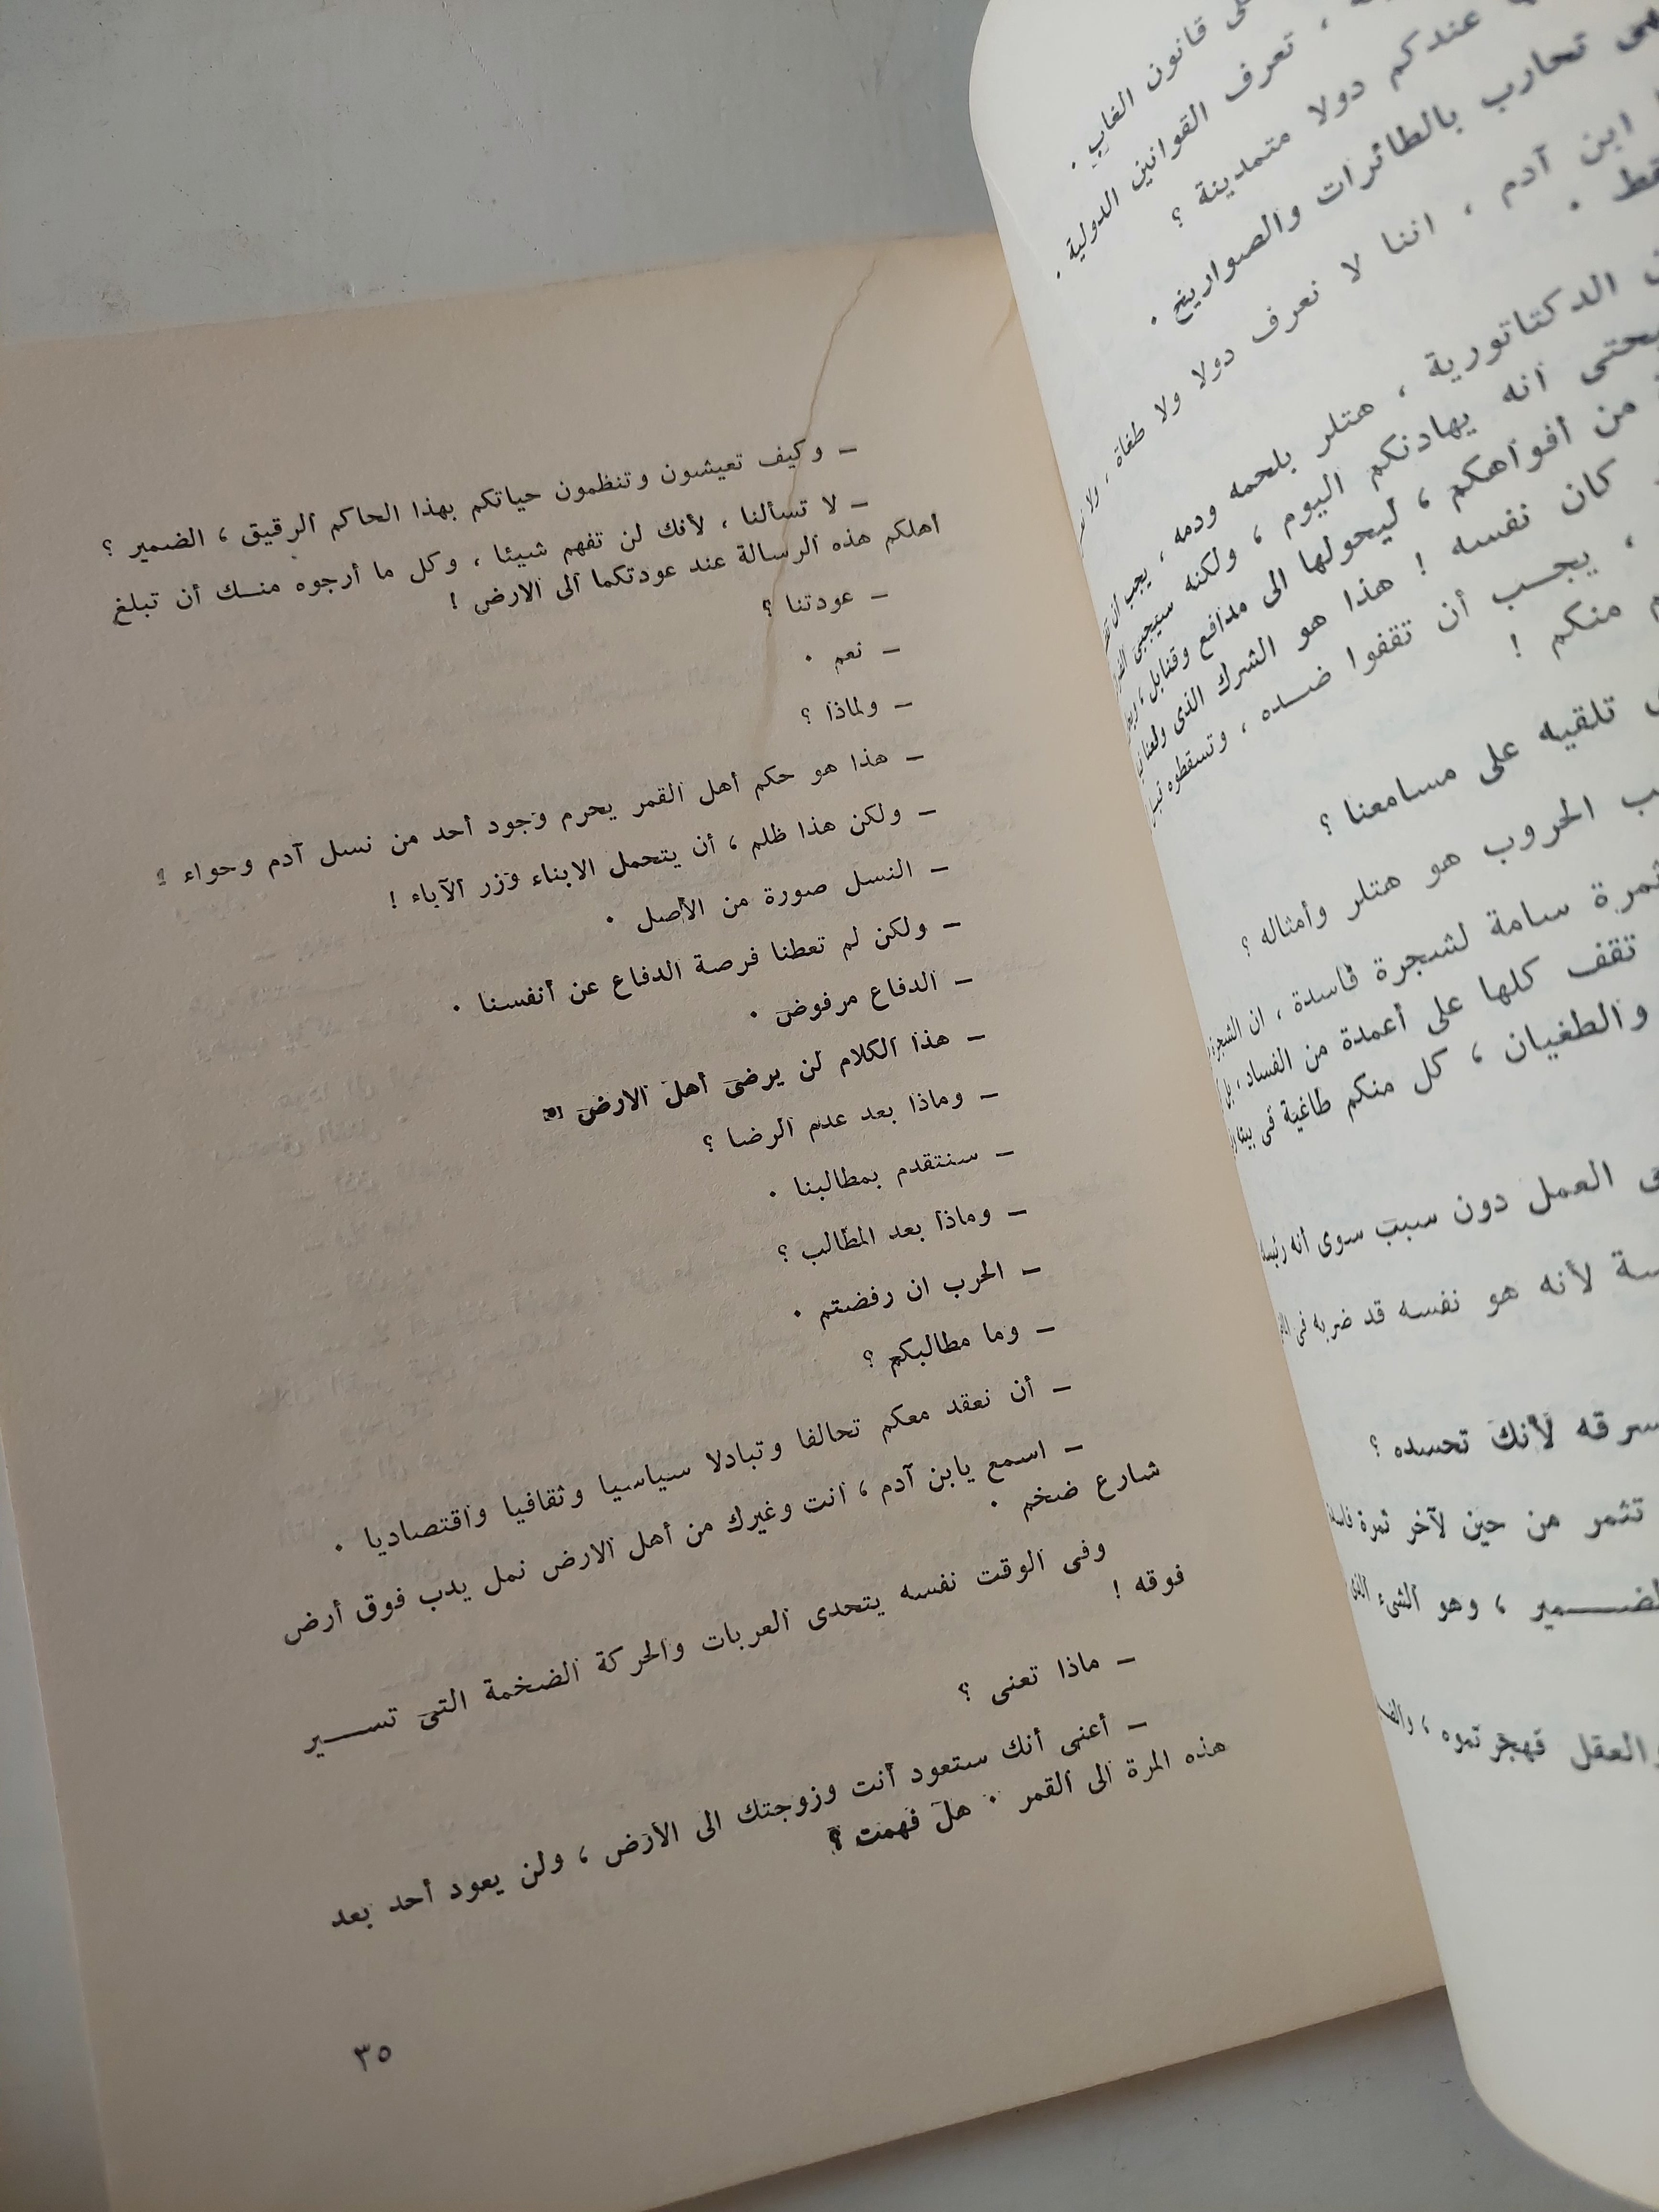 قانون الغاب .
، تعرف القوانين الدولية .
عندكم دولا متمدينة ؟
تحارب بالطائرات والصواريخ .
ابن آدم ، اننا لا نعرف دولا ولا طغاة ، ولا
فقط .
الدكتاتورية ، هتلر بلحمه ودمه ، يجب أن
انه يهادنكم اليوم ، ولكنه سيجيء
من أفواهكم ، ليحولها الى مدافع وقنابل ،
كان نفسه ! هذا هو الشرك الذى
، يجب أن تقفوا ضده ، وتسقطوه
منكم !
تلقيه على مسامعنا ؟
الحروب هو هتلر وأمثاله ؟
ثمرة سامة لشجرة فاسدة ، ان
تقف كلها على أعمدة من الفساد ، بل
والطغيان ، كل منكم طاغية فى
العمل دون سبب سوى أنه
لأنه هو نفسه قد ضربه فى
لأنك تحسده ؟
تثمر من حين لآخر ثمرة
الضمير ، وهو الشىء الذى
والعقل
– وكيف تعيشون وتنظمون حياتكم بهذا الحاكم الرقيق ، الضمير ؟
– لا تسألنا ، لأنك لن تفهم شيئا ، وكل ما أرجوه منك أن تبلغ
أهلكم هذه الرسالة عند عودتكما الى الارض !
– عودتنا ؟
– نعم .
– ولماذا ؟
– هذا هو حكم أهل القمر يحرم وجود أحد من نسل آدم وحواء !
– ولكن هذا ظلم ، أن يتحمل الابناء وزر الآباء !
– النسل صورة من الأصل .
– ولكن لم تعطنا فرصة الدفاع عن أنفسنا .
– الدفاع مرفوض .
– هذا الكلام لن يرضى أهل الارض
– وماذا بعد عدم الرضا ؟
– سنتقدم بمطالبنا .
– وماذا بعد المطالب ؟
– الحرب ان رفضتم .
– وما مطالبكم ؟
– أن نعقد معكم تحالفا وتبادلا سياسيا وثقافيا واقتصاديا .
– اسمع يابن آدم ، انت وغيرك من أهل الارض نمل يدب فوق أرض
شارع ضخم .
وفى الوقت نفسه يتحدى العربات والحركة الضخمة التى تسير
فوقه !
– ماذا تعنى ؟
– أعنى أنك ستعود أنت وزوجتك الى الأرض ، ولن يعود أحد بعد
هذه المرة الى القمر . هل فهمت ؟
٣٥